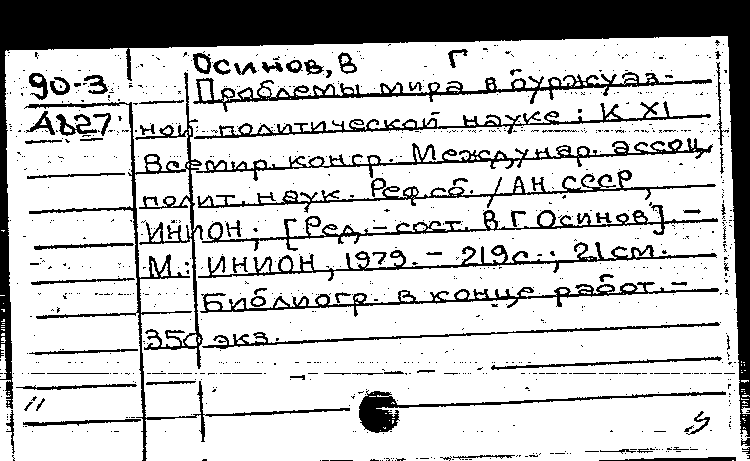 Осинов, В Г
90-3
Проблемы мира в буржуаз-
А827
ной политической науке: К XI
Всемир. конгр. Междунар. ассоц.
полит. наук. Реф. сб. / АН СССР,
ИНИОН; [Ред.-сост. В.Г. Осинов]. -
М.: ИНИОН, 1979. - 219с.; 21см.
Библиогр. в конце работ. -
350 экз.
11